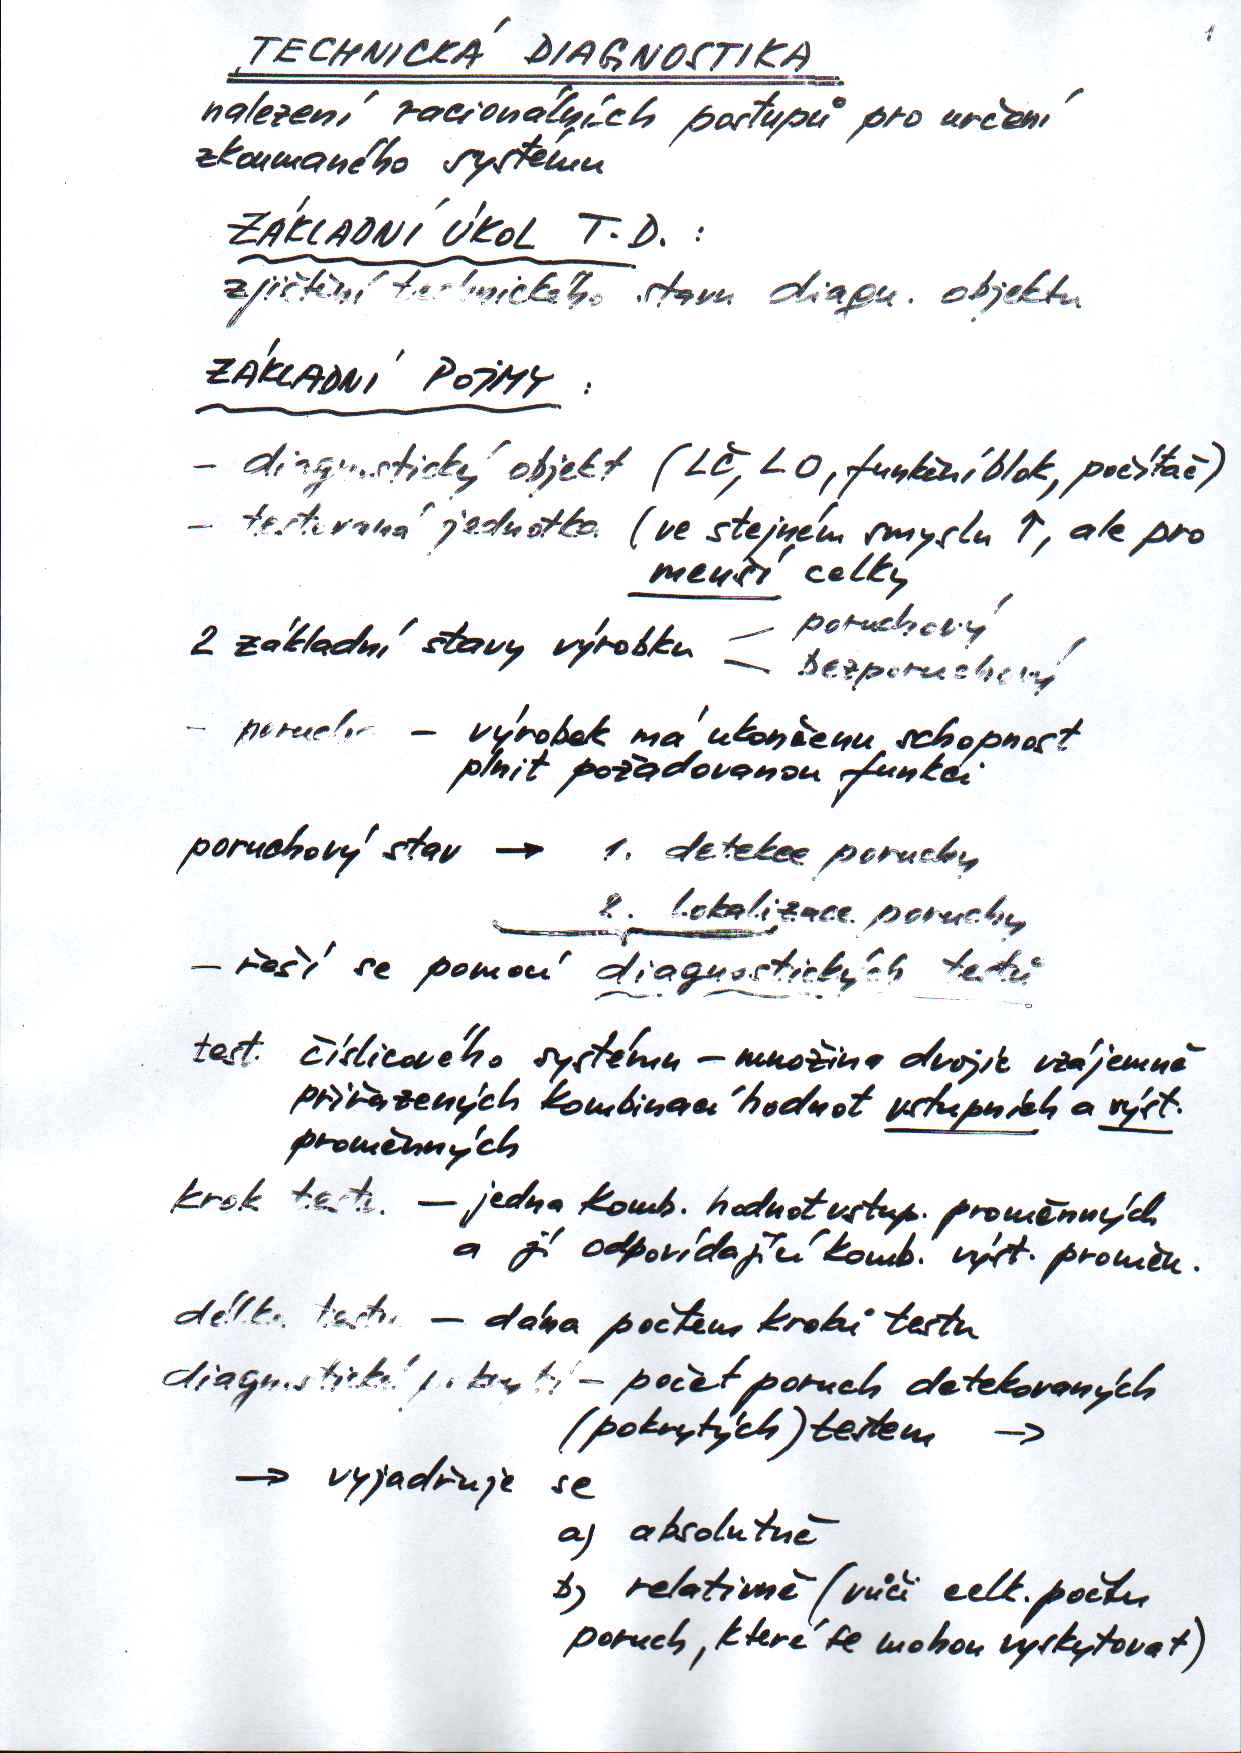 1
TECHNICKÁ DIAGNOSTIKA
nalezení racionálních postupů pro určení
zkoumaného systému
ZÁKLADNÍ ÚKOL T.D. :
zjištění technického stavu diagn. objektu
ZÁKLADNÍ POJMY :
- diagnostický objekt (LČ, LO, funkční blok, počítač)
- testovaná jednotka (ve stejném smyslu ↑, ale pro
menší celky
2 základní stavy výrobku - poruchový
- bezporuchový
- porucha - výrobek má ukončenu schopnost
plnit požadovanou funkci
poruchový stav → 1. detekce poruchy
2. lokalizace poruchy
- řeší se pomocí diagnostických testů
test číslicového systému - množina dvojic vzájemně
přiřazených kombinací hodnot vstupních a výst.
proměnných
krok testu - jedna komb. hodnot vstup. proměnných
a jí odpovídající komb. výst. proměn.
délka testu - dána počtem kroků testu
diagnostické pokrytí - počet poruch detekovaných
(pokrytých) testem →
→ vyjadřuje se
a) absolutně
b) relativně (vůči celk. počtu
poruch, které se mohou vyskytovat)